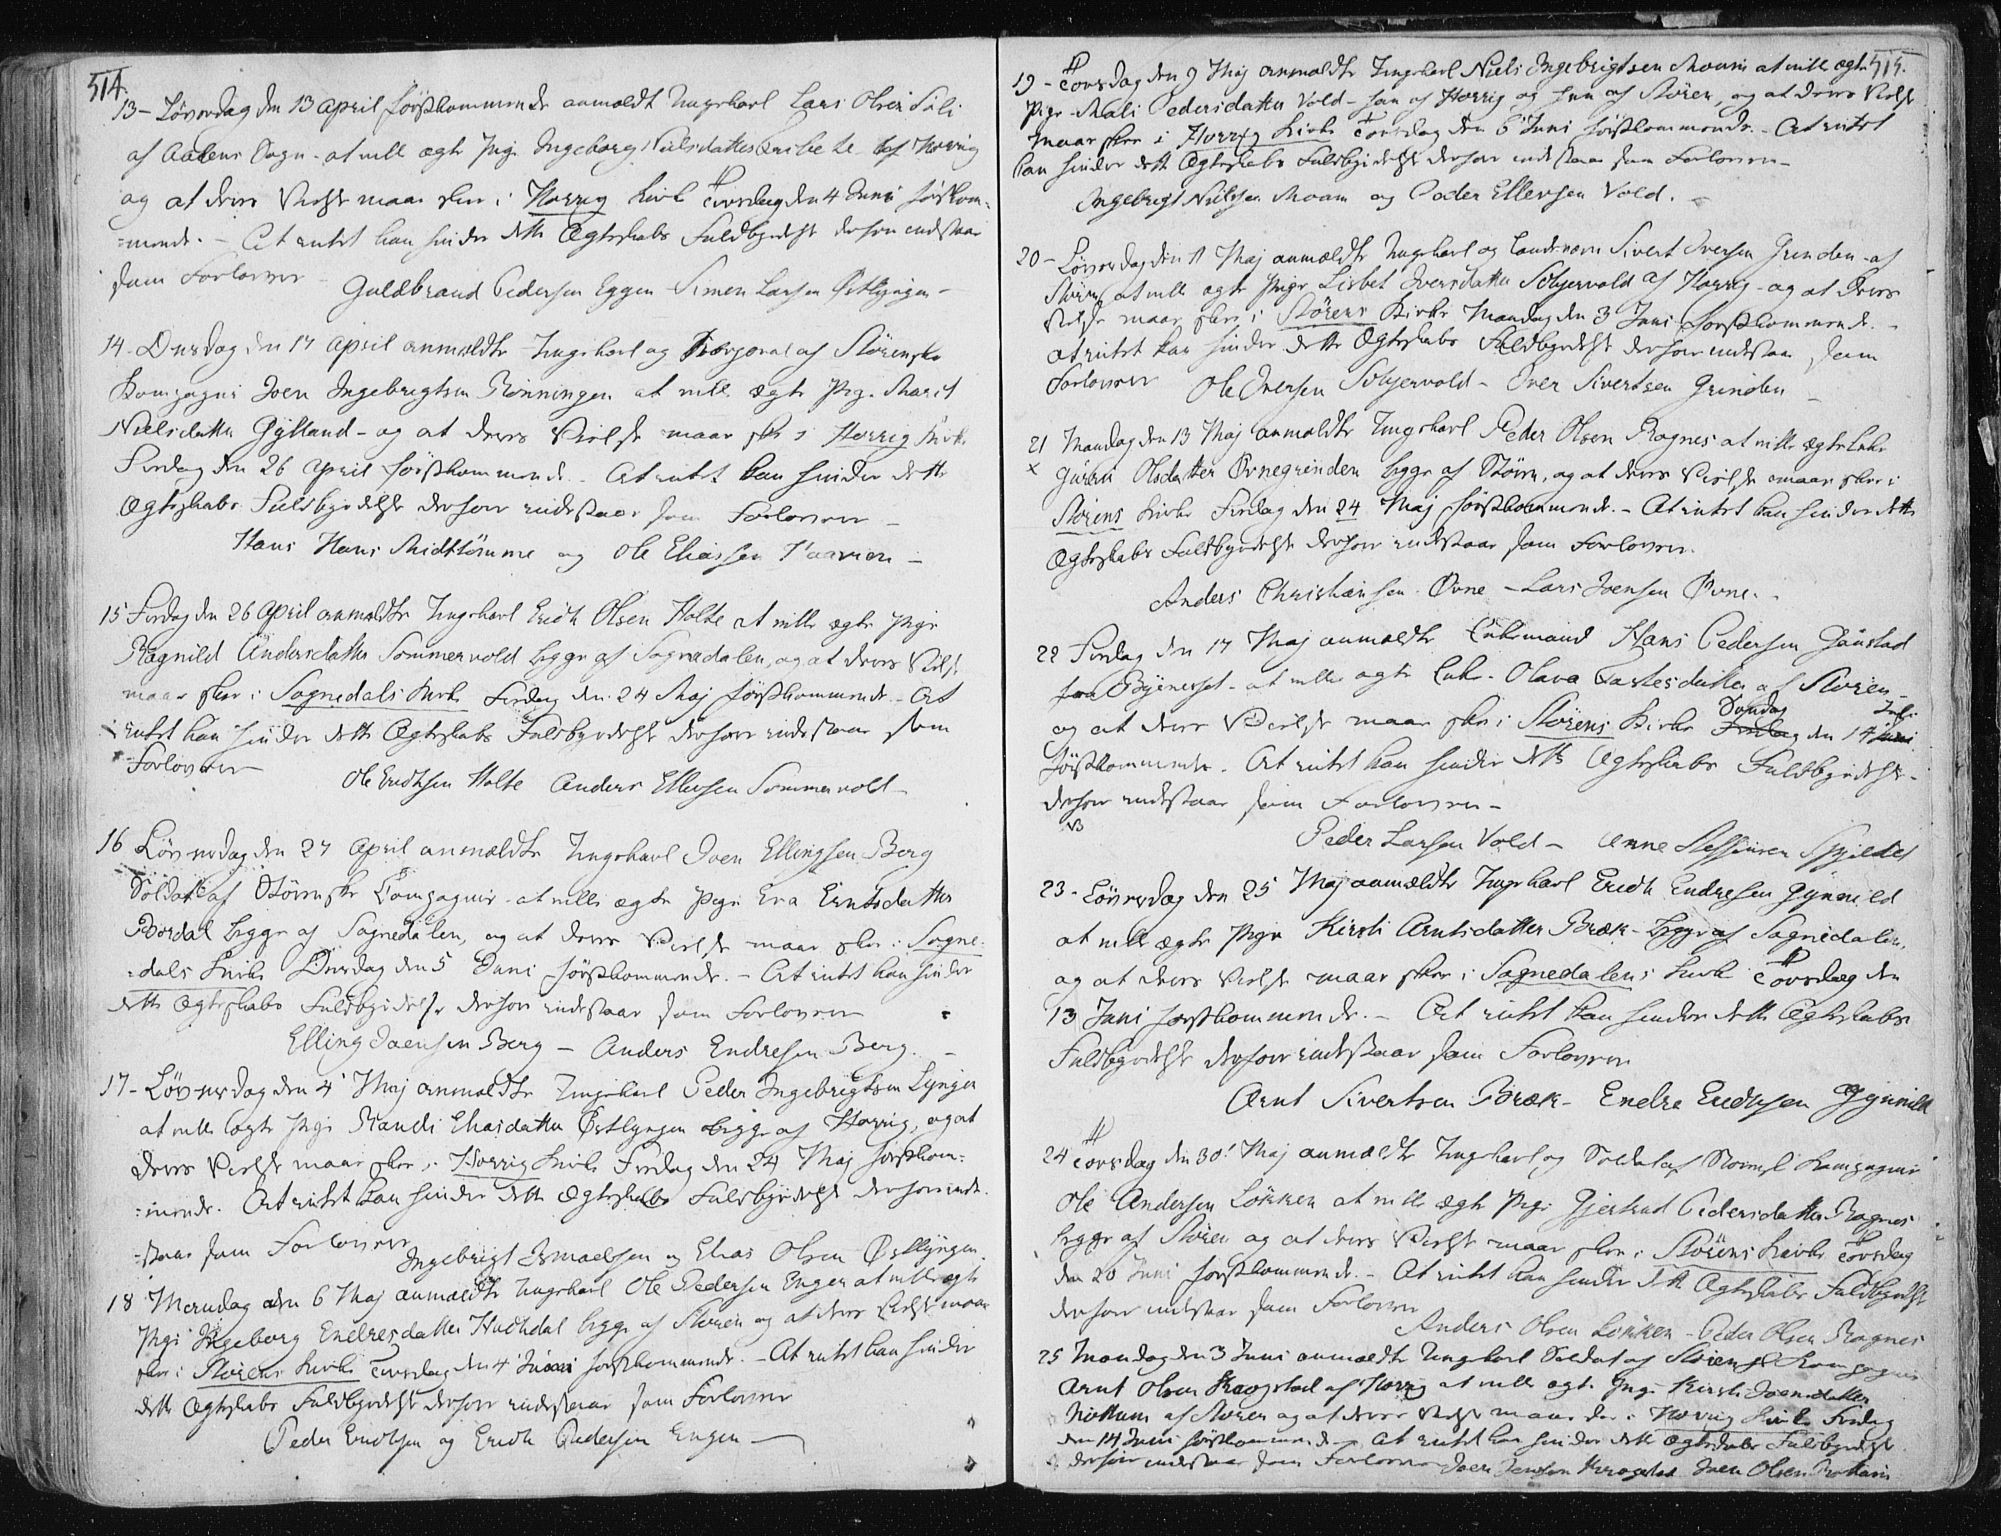 514.
13 - Löverdag den 13 April förstkommende anmældte Ungekarl Lars Olsen
af Aalens Sogn - at ville ægte Pige Ingeborg Nielsdatter af Horrig
og at deres Vielse maae skee i Horrig Kirke Tirsdag den 4 Juni förstkom-
=mende. - At intet kan hindre dette Ægteskabs Fuldbyrdelse derfore indestaae
som Forlovere -
Guldbrand Pedersen Eggen - Simen Larsen Östlyngen -
14 - Onsdag den 17 April anmeldte Ungekarl og af Störenske
Kompagnie Joen Ingebrigtsen Rönningen at ville ægte Pige Marit
Nielsdatter Gylland - og at deres Vielse maae skee i Horrig Kirke
Fredag den 26 April förstkommende. At intet kan hindre dette
Ægteskabs Fuldbyrdelse derfore indestaaer som Forlovere -
Hans Hans Midttömme og Ole Eliassen -
15 Fredag den 26 April anmeldte Ungekarl Erich Olsen Holte at ville ægte Pige
Ragnild Andersdatter Sommervold begge af Sognedalen, og at deres Vielse
maae skee i Sognedals Kirke Fredag den 24 Maj förstkommende - At
intet kan hindre dette Ægteskabs Fuldbyrdelse derfore indestaaer som
Forlovere
Ole Erichsen Holte Anders Ellevsen Sommervold -
16 Löverdag den 27 April anmældte Ungekarl Joen Ellingsen Berg
Soldat af Störenske Compagnie at ville ægte Pige Eva Erntsdatter
Bordal begge af Sognedalen, og at deres Vielse maae skee i Sogne-
=dals Kirke Onsdag den 5 Juni förstkommende. - At intet kan hindre
dette Ægteskabs Fuldbyrdelse derfore indestaaer som Forlovere
Elling Joensen Berg - Anders Endresen Berg. -
17 - Löverdag den 4 Maj anmeldte Ungekarl Peder Ingebrigtsen Lyngen
at ville ægte Pige Randi Eliasdatter Östlyngen begge af Horrig, og at
deres Vielse maae skee i Horrig Kirke Fredag den 24 Maj förstkom-
=mende. At intet kan hindre dette Ægteskabs Fuldbyrdelse derfore inde-
=staae som Forlovere
Ingebrigt Ismaelsen og Elias Olsen Östlyngen.
18 Mandag den 6 Maj anmældte Ungekarl Ole Pedersen Engen at ville ægte
Pige Ingeborg Endresdatter Huchdal begge af Stören og at deres Vielse maae
skee i Störens Kirke Tirsdag den 4 Juni förstkommende. - At intet kan hindre
dette Ægteskabs Fuldbyrdelse derfore indestaaer som Forlovere
Peder Erichsen og Erich Pedersen Engen -
515.
19 - Torsdag den 9 Maj anmældte Ungekarl Niels Ingebrigtsen Moum at ville ægte
Pige Mali Pedersdatter Vold - han af Horrig og hun af Stören, og at deres Vielse
maae skee i Horrig Kirke Torsdag den 6 Juni förstkommende. - At intet
kan hindre dette Ægteskabs Fuldbyrdelse derfore indestaae som Forlovere -
Ingebrigt Nielsen Moum og Peder Ellevsen Vold. -
20 - Löverdag den 11 Maj anmældte Ungekarl og Landeværn Sivert Iversen Grinden - af
Stören at ville ægte Pige Lisbet Iversdatter Solyervold af Horrig - og at deres
Vielse maae skee i Störens Kirke Mandag den 3 Juni förstkommende. -
At intet kan hindre dette Ægteskabs Fuldbyrdelse derfore indestaae som
Forlovere Ole Iversen Solyervold - Iver Sivertsen Grinden -
21 Mandag den 13 Maj anmældte Ungekarl Peder Olsen Rognes at ville ægte Enke
x Guren Olsdatter Övnegrinden begge af Stören, og at deres Vielse maae skee i
Störens Kirke Fredag den 24 Maj förstkommende. - At intet kan hindre dette
Ægteskabs Fuldbyrdelse derfore indestaaer som Forlovere.
Anders Christiansen Övne - Lars Joensen Övne.
22 Fredag den 17 Maj anmældte Enkemand Hans Pedersen Gaustad
fra Byenesset - at ville ægte Enke Olava Larsdatter af Stören -
og at deres Vielse maae skee i Störens Kirke Fredag Söndag den 14 Juni Juli
förstkommende. At intet kan hindre dette Ægteskabs Fuldbyrdelse -
derfore indestaaer som Forlovere -
Peder Larsen Vold - Arne Steffensen Spjeldet
23 - Löverdag den 25 Maj anmældte Ungekarl Erich Endresen Gynnild
at ville ægte Pige Kirsti Arntsdatter Bræk - begge af Sognedalen,
og at deres Vielse maae skee i Sognedalens Kirke Torsdag den
13 Juni förstkommende. - At intet kan hindre dette Ægteskabs
Fuldbyrdelse derfore indestaaer som Forlovere
Arnt Sivertsen Bræk - Endre Erichsen Gynnild
24 Torsdag den 30! Maj anmældte Ungekarl og Soldat af Störens Kompagnie
Ole Andersen Lökken at ville ægte Pige Gjertrud Pedersdatter Rognes
begge af Stören og at deres Vielse maae skee i Störens Kirke Torsdag
den 20 Juni förstkommende. - At intet kan hindre dette Ægteskabs Fuldbyrdelse
derfore indestaae som Forlovere
Anders Olsen Lökken - Peder Olsen Rognes
25 Mandag den 3 Juni anmældte Ungekarl Soldat af Störenske Kompagnie
Arnt Olsen Krogstad af Horrig at ville ægte Pige Kirsti Joensdatter
af Stören og at deres Vielse maae skee i Horrig Kirke Fredag
den 14 Juni förstkommende - At intet kan hindre dette Ægteskabs Fuldbyrdelse
derfore indestaae som Forlovere Joen Krogstad Joen Olsen